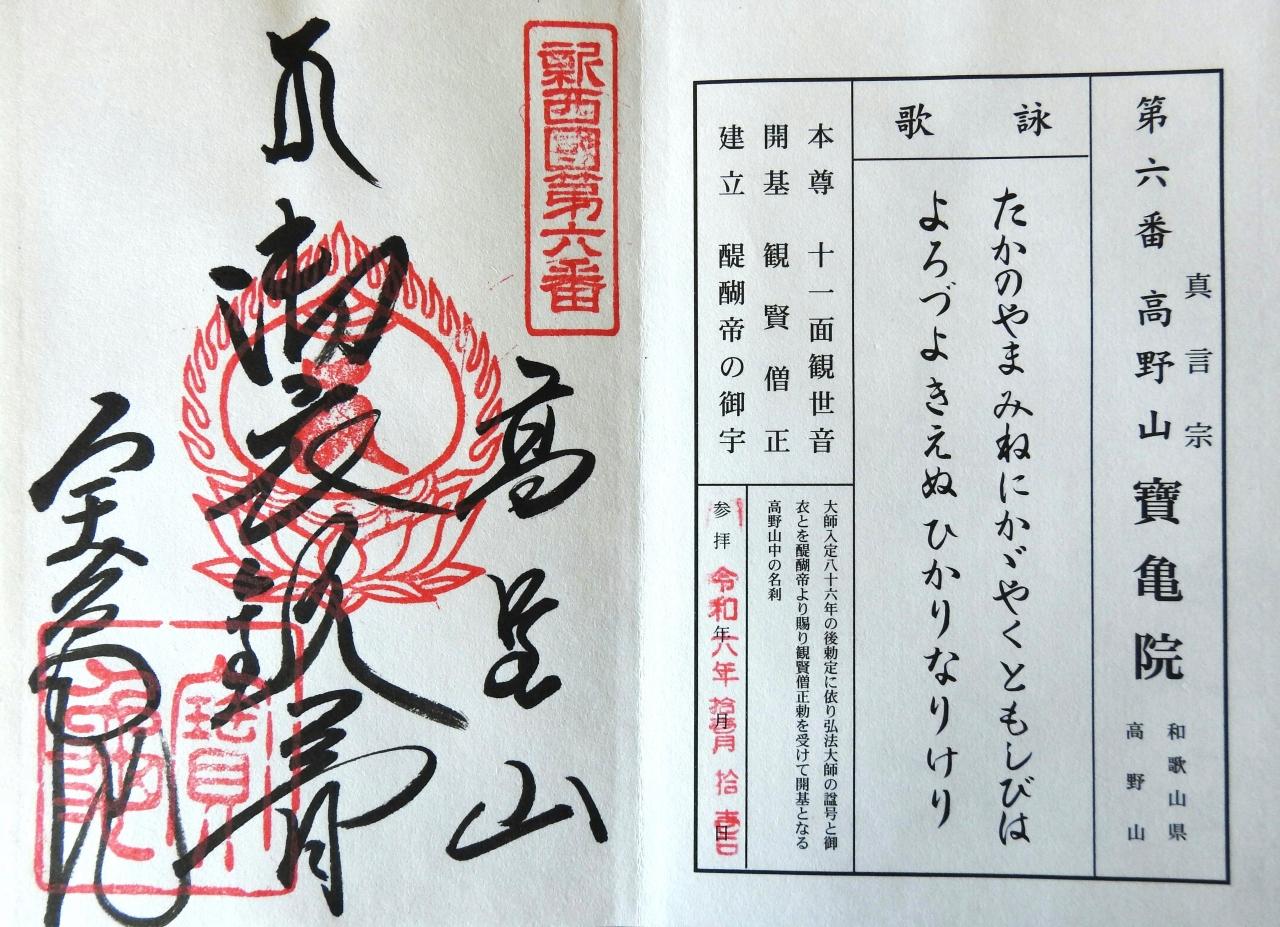 第六番 高野山 寶亀院
真言宗
和歌山県
高野山
詠歌
たかのやまみねにかゞやくともしびは
よろづよきえぬひかりなりけり
本尊 十一面観世音
開基 観賢僧正
建立 醍醐帝の御宇
大師入定八十六年の後勅定に依り弘法大師の諡号と御
衣とを醍醐帝より賜り観賢僧正勅を受けて開基となる
高野山中の名刹
参拝 令和六年 拾壱月 拾壱日
新西國第六番
高呈山
御衣観音
寶亀院